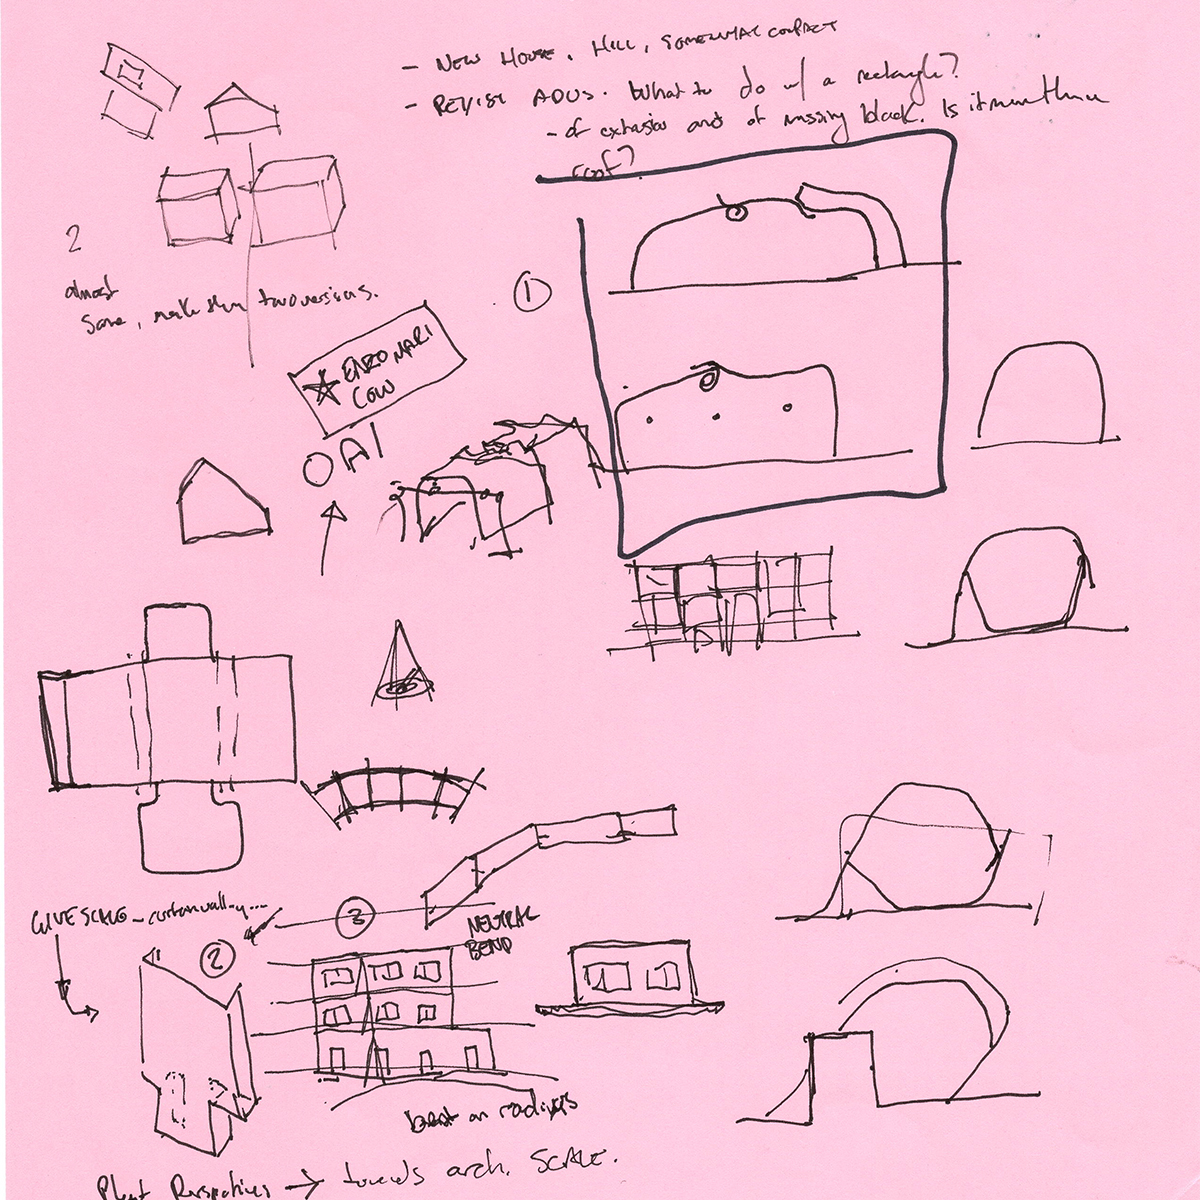 - NEW HOUSE. HILL, SOMEWHAT COMPACT
- REVISE ADUS. What to do w/ a rectangle?
- of extrusion and of missing black. Is it more than a
roof?
2
almost
same, make them two versions.
1
ENZO MARI
COW
OAI
GIVE SCALE - curtain wall
3
NEUTRAL
BEND
2
bent on radiuses
Plant Perspectives → towards arch. SCALE.